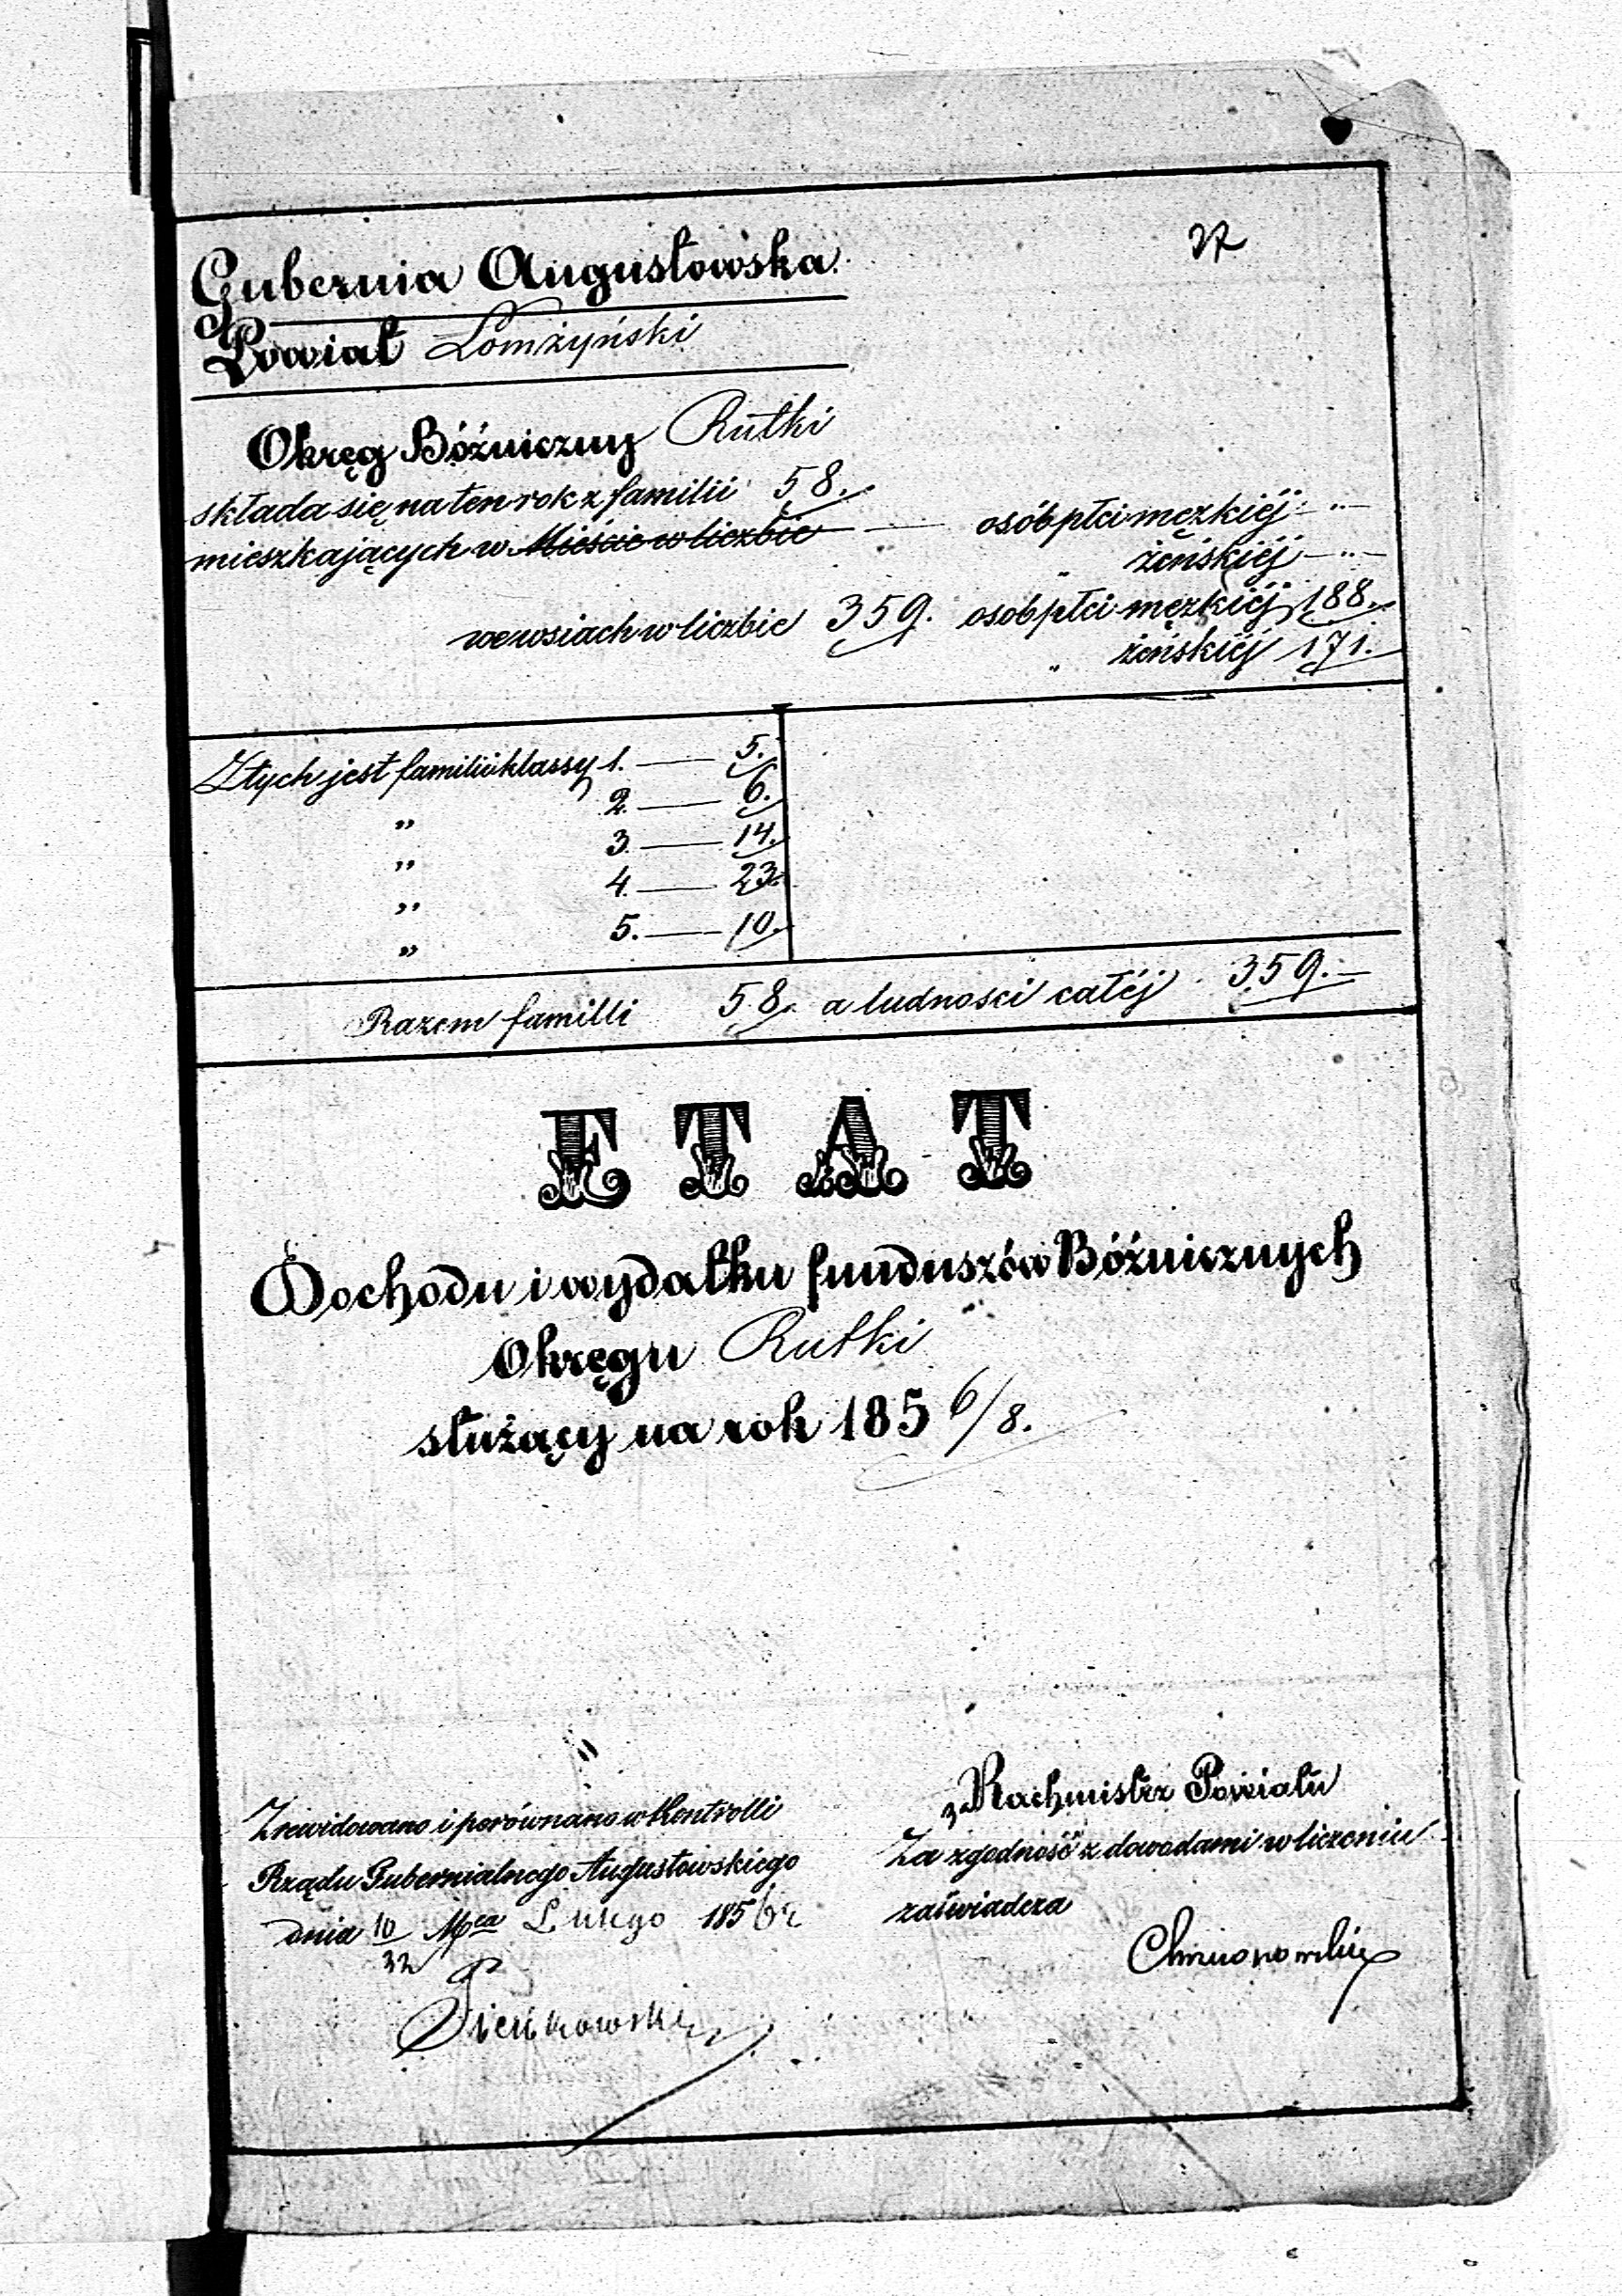 27
Gubernia Augustowska.
Powiat Łomżyński
Okręg Bóźniczny Rutki
składa się na ten rok z familii 58.
mieszkających w Mieście w liczbie — osób płci męzkiéj — " —
" żeńskiéj — " —
we wsiach w liczbie 359. osob płci męzkiéj 188.
" żeńskiéj 171.
Z tych jest familii klassy 1. — 5.
" 2. — 6.
" 3. — 14.
" 4. — 23.
" 5. — 10.
Razem familli 58. a ludnosci całéj 359.
ETAT
Dochodu i wydatku funduszów Bóźnicznych
Okręgu Rutki
służący na rok 1856/8.
Zrewidowano i porównano w Kontrolli
Rządu Gubernialnego Augustowskiego
dnia 10/22 Mca Lutego 1856 r
Pieńkowski
Rachmistrz Powiatu
Za zgodność z dowodami w liczeniu
zaświadcza